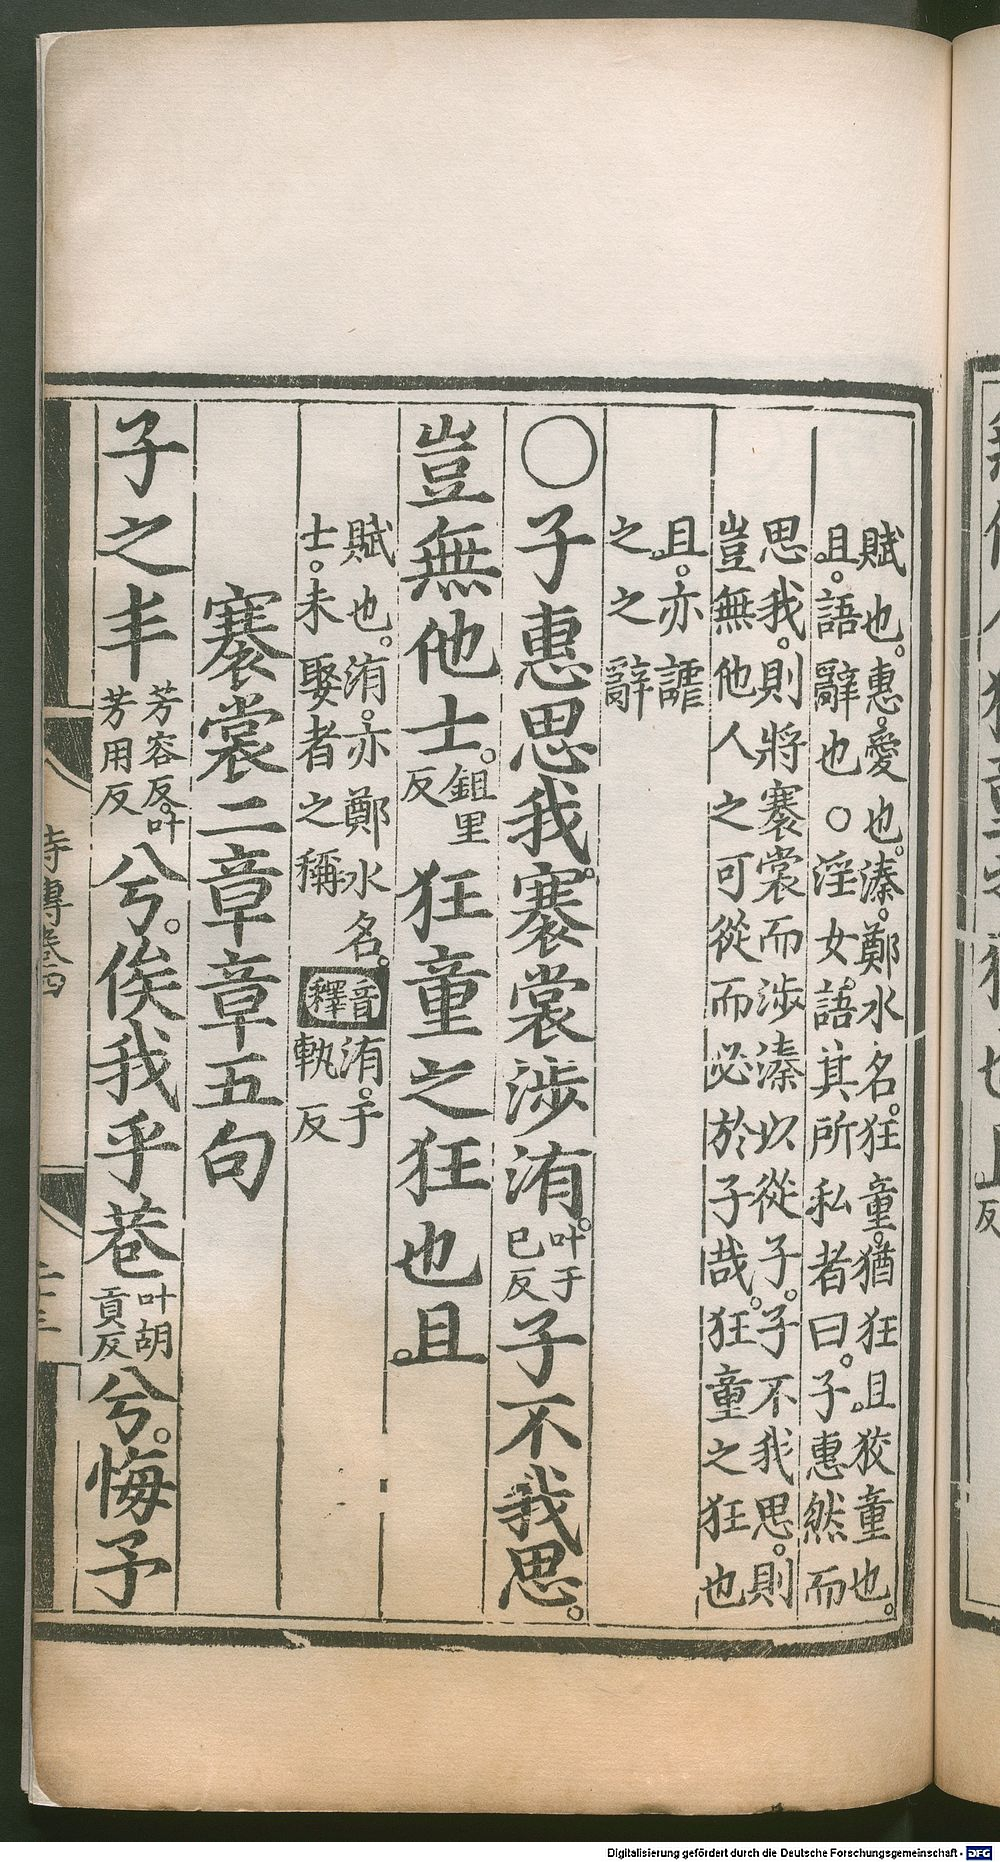 賦也。惠。愛也。溱。鄭水名。狂童。猶狂且狡童也。
且。語辭也○淫女。語其所私者曰。子惠然而
思我。則將褰裳而涉溱以從子。子不我思。則
豈無他人之可從而必於子哉。狂童之狂也
且。亦謔
之之辭
○子惠思我。褰裳涉洧。叶于
已反
子不我思。
豈無他士。鉏里
反
狂童之狂也且。
賦也。洧。亦鄭水名。音釋洧。于
士。未娶者之稱
軌反
褰裳二章章五句
子之丰芳容反。叶
芳用反
兮。俟我乎巷叶胡
貢反
兮。悔予
詩傳卷四
Digitalisierung gefördert durch die Deutsche Forschungsgemeinschaft - DFG